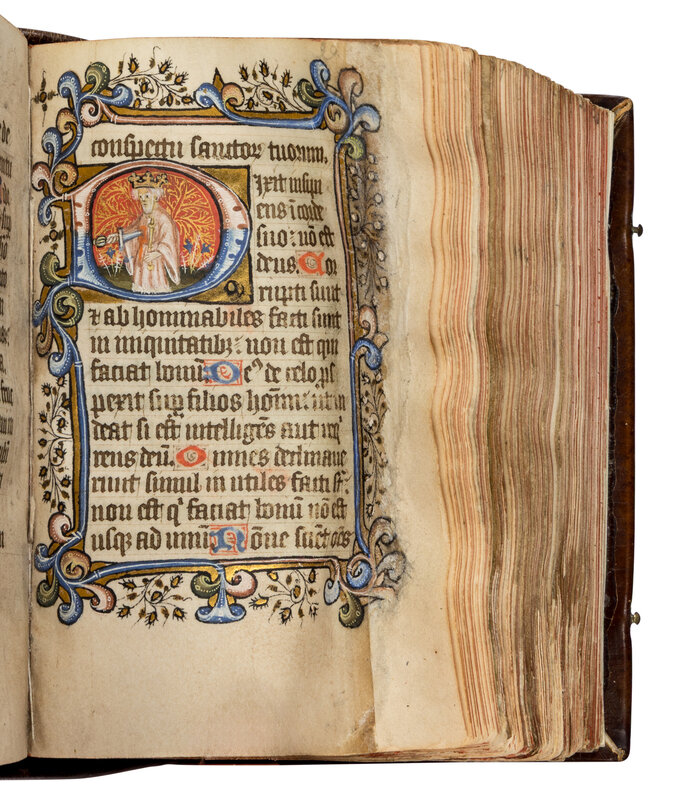 conspectu sanctor tuorum.
Dixit insipi
ens i corde
suo: nō est
deus. Cor
rupti sunt
⁊ ab hominabiles facti sunt
in iniquitatibꝫ: non est qui
faciat bonū. Deꝰ de celo ꝓs
perit suꝑ filios homī: ut ui
deat si est intelligēs aut req
rens deū. Omnes declinaue
runt simul in utiles facti st̄.
non est qⁱ faciat bonū nō est
usqꝫ ad unū. Nōne sciēt oēs